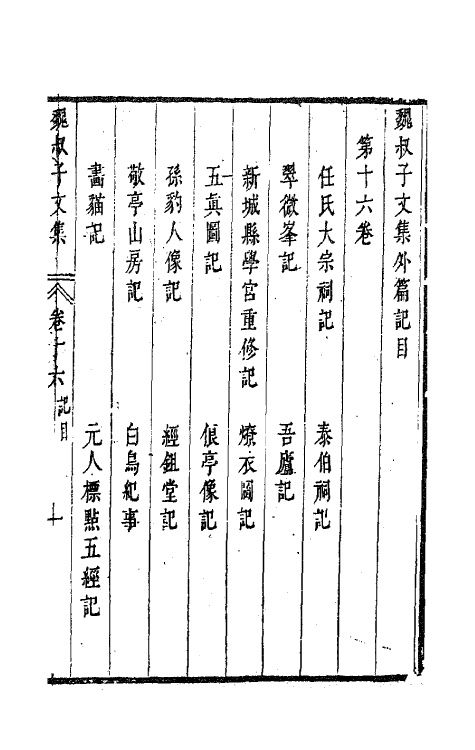 魏叔子文集外篇記目
第十六卷
任氏大宗祠記　泰伯祠記
翠微峯記　吾廬記
新城縣學宮重修記　燎衣圖記
五眞圖記　俍亭像記
孫豹人像記　經鉏堂記
敬亭山房記　白鳥紀事
畫貓記　元人標點五經記
魏叔子文集　卷十六　記目　十